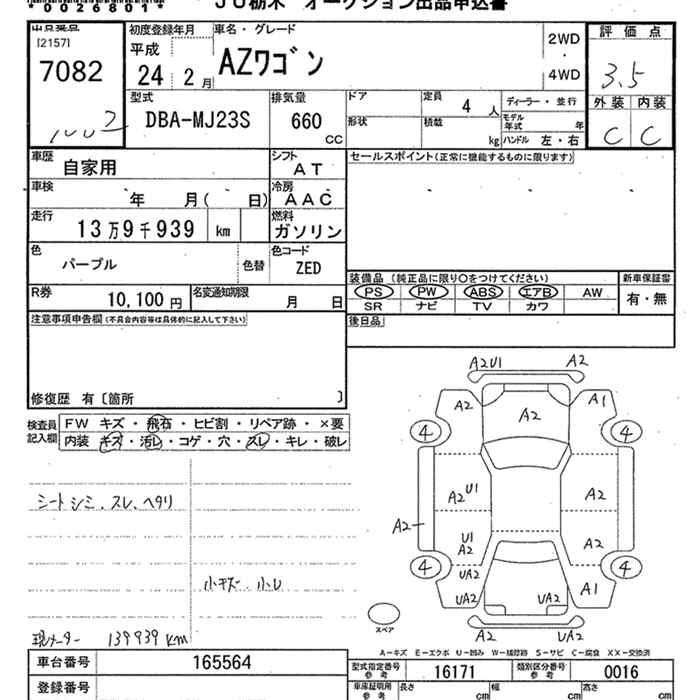 *0026801*
JU栃木 オークション出品申込書
出品番号
[2157]
7082
初度登録年月
平成
24 2 月
車名・グレード
AZワゴン
2WD
・
4WD
評価点
3.5
外装 内装
C C
型式
DBA-MJ23S
排気量
660 CC
ドア
定員 4 人
形状
積載 kg
ディーラー・並行
モデル年式 年
ハンドル 左・右
車歴 自家用
シフト AT
セールスポイント(正常に機能するものに限ります)
車検 年 月( 日)
冷房 AAC
走行 13万9千939 km
燃料 ガソリン
色 パープル 色替
色コード ZED
R券 10,100 円
名変通知期限 月 日
装備品 (純正品に限り○をつけてください)
新車保証書
PS PW ABS エアB AW
SR ナビ TV カワ
有・無
後日品
注意事項申告欄(不具合内容等は具体的に記入して下さい)
修復歴 有〔箇所 〕
検査員記入欄
FW キズ・飛石・ヒビ割・リペア跡・×要
内装 キズ・汚レ・コゲ・穴・スレ・キレ・破レ
シートシミ、スレ、ヘタリ
小キズ・小凹
現メーター 139939 km
A2U1 A2
A2 A2 A1
4 4
A2 U1 A2
A2
U1
A2 A2
4 4
UA2 A1
UA2 UA2
A2 UA2
スペア
A-キズ E-エクボ U-凹み W-補修跡 S-サビ C-腐食 XX-交換済
車台番号 165564
型式指定番号 参考 16171
類別区分番号 参考 0016
登録番号
車庫証明用 参考
長さ cm
幅 cm
高さ cm